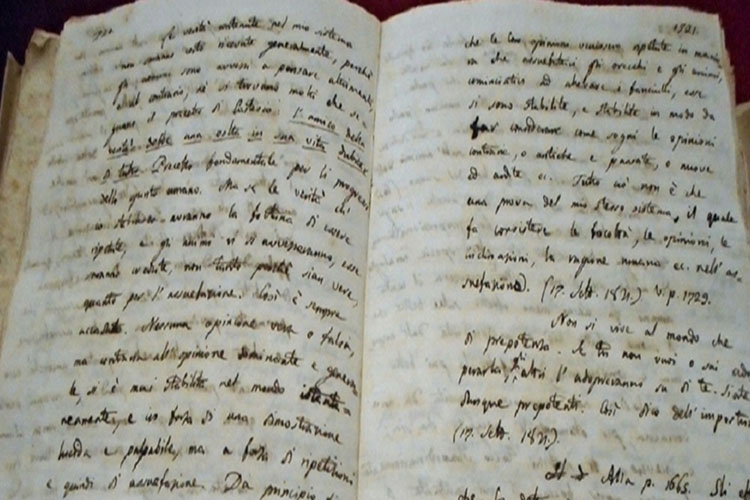 1720
Le verità contenute nel mio sistema
non saranno certo ricevute generalmente, perchè
gli uomini sono avvezzi a pensare altrimenti,
e al contrario, nè si trovano molti che se-
guano il precetto di Cartesio: l'amico della
verità debbe una volta in sua vita dubitar
di tutto. Precetto fondamentale per li progressi
dello spirito umano. Ma se le verità ch'
io stabilisco avranno la fortuna di essere
ripetute, e gli animi vi si avvezzeranno, esse
saranno credute, non tanto perchè sian vere,
quanto per l'assuefazione. Così è sempre
accaduto. Nessuna opinione vera o falsa,
ma contraria all'opinione dominante e genera-
le, si è mai stabilita nel mondo istanta-
neamente, e in forza di una dimostrazione
lucida e palpabile, ma a forza di ripetizioni
e quindi di assuefazione. Da principio
1721.
che le loro opinioni venissero ripetute in maniera
che assuefattici gli orecchi e gli animi,
cominciatisi ad allevare i fanciulli, esse
si sono stabilite, e stabilite in modo da
far considerare come sogni le opinioni
contrarie, o antiche e passate, o nuove
ed ardite ec. Tutto ciò non è che
una prova del mio stesso sistema, il quale
fa consistere le facoltà, le opinioni, le
inclinazioni, la ragione umana ec. nell'as-
suefazione. (17. Sett. 1821.) V. p. 1729.
Non si vive al mondo che
di prepotenza. Se tu non vuoi o sai
gli altri l'adopreranno su di te. Siate
dunque prepotenti. Così dico dell'impostura
(17. Sett. 1821.).
Alla p. 1665.